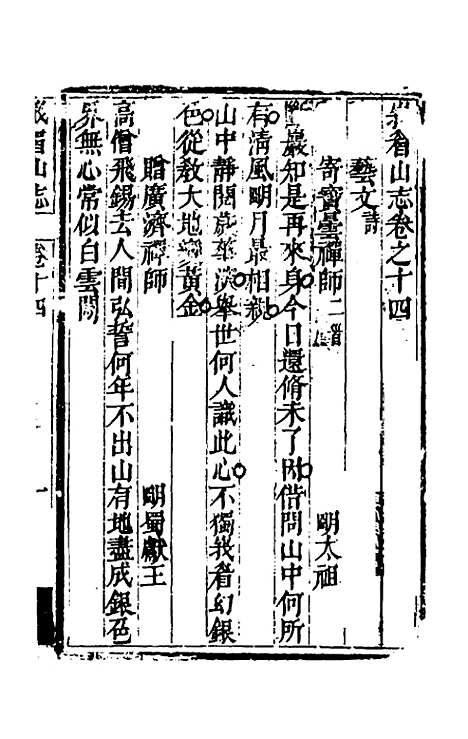 眉山志卷之十四
藝文詩
寄寶曇禪師二首 明太祖
最知是再來身今日還脩未了因借問山中何所
有清風明月最相親
山中靜閱歲華深舉世何人識此心不獨我看幻銀
色從教大地變黃金
贈廣濟禪師 明蜀獻王
高僧飛錫去人間弘誓何年不出山有地盡成銀色
界無心常似白雲閒
眉山志 卷十四 一